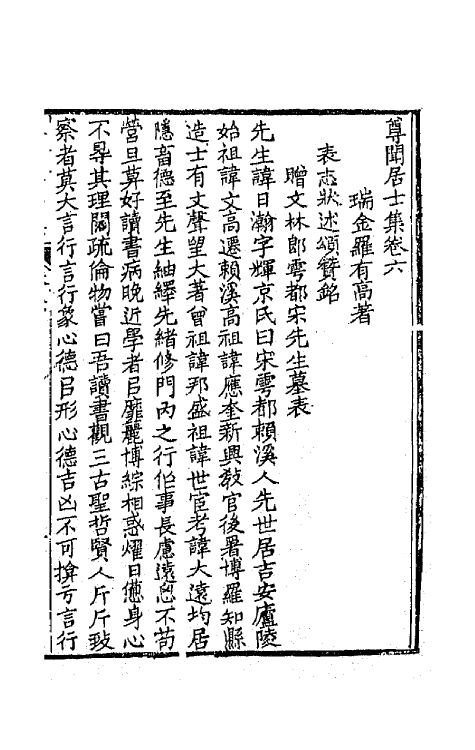 尊聞居士集卷六
瑞金羅有高著
表志狀述頌贊銘
贈文林郎雩都宋先生墓表
先生諱日瀚字輝京氏曰宋雩都賴溪人先世居吉安廬陵
始祖諱文高遷賴溪高祖諱應奎新興敎官後署博羅知縣
造士有文聲望大著曾祖諱那盛祖諱世宦考諱大遠均居
隱畜德至先生紬繹先緒修門內之行作事長慮遠思不苟
營旦莫好讀書病晚近學者㠯靡麗博綜相惑燿日儳身心
不㝵其理闊疏倫物嘗曰吾讀書觀三古聖哲賢人斤斤致
察者莫大言行言行象心德㠯形心德吉凶不可揜於言行